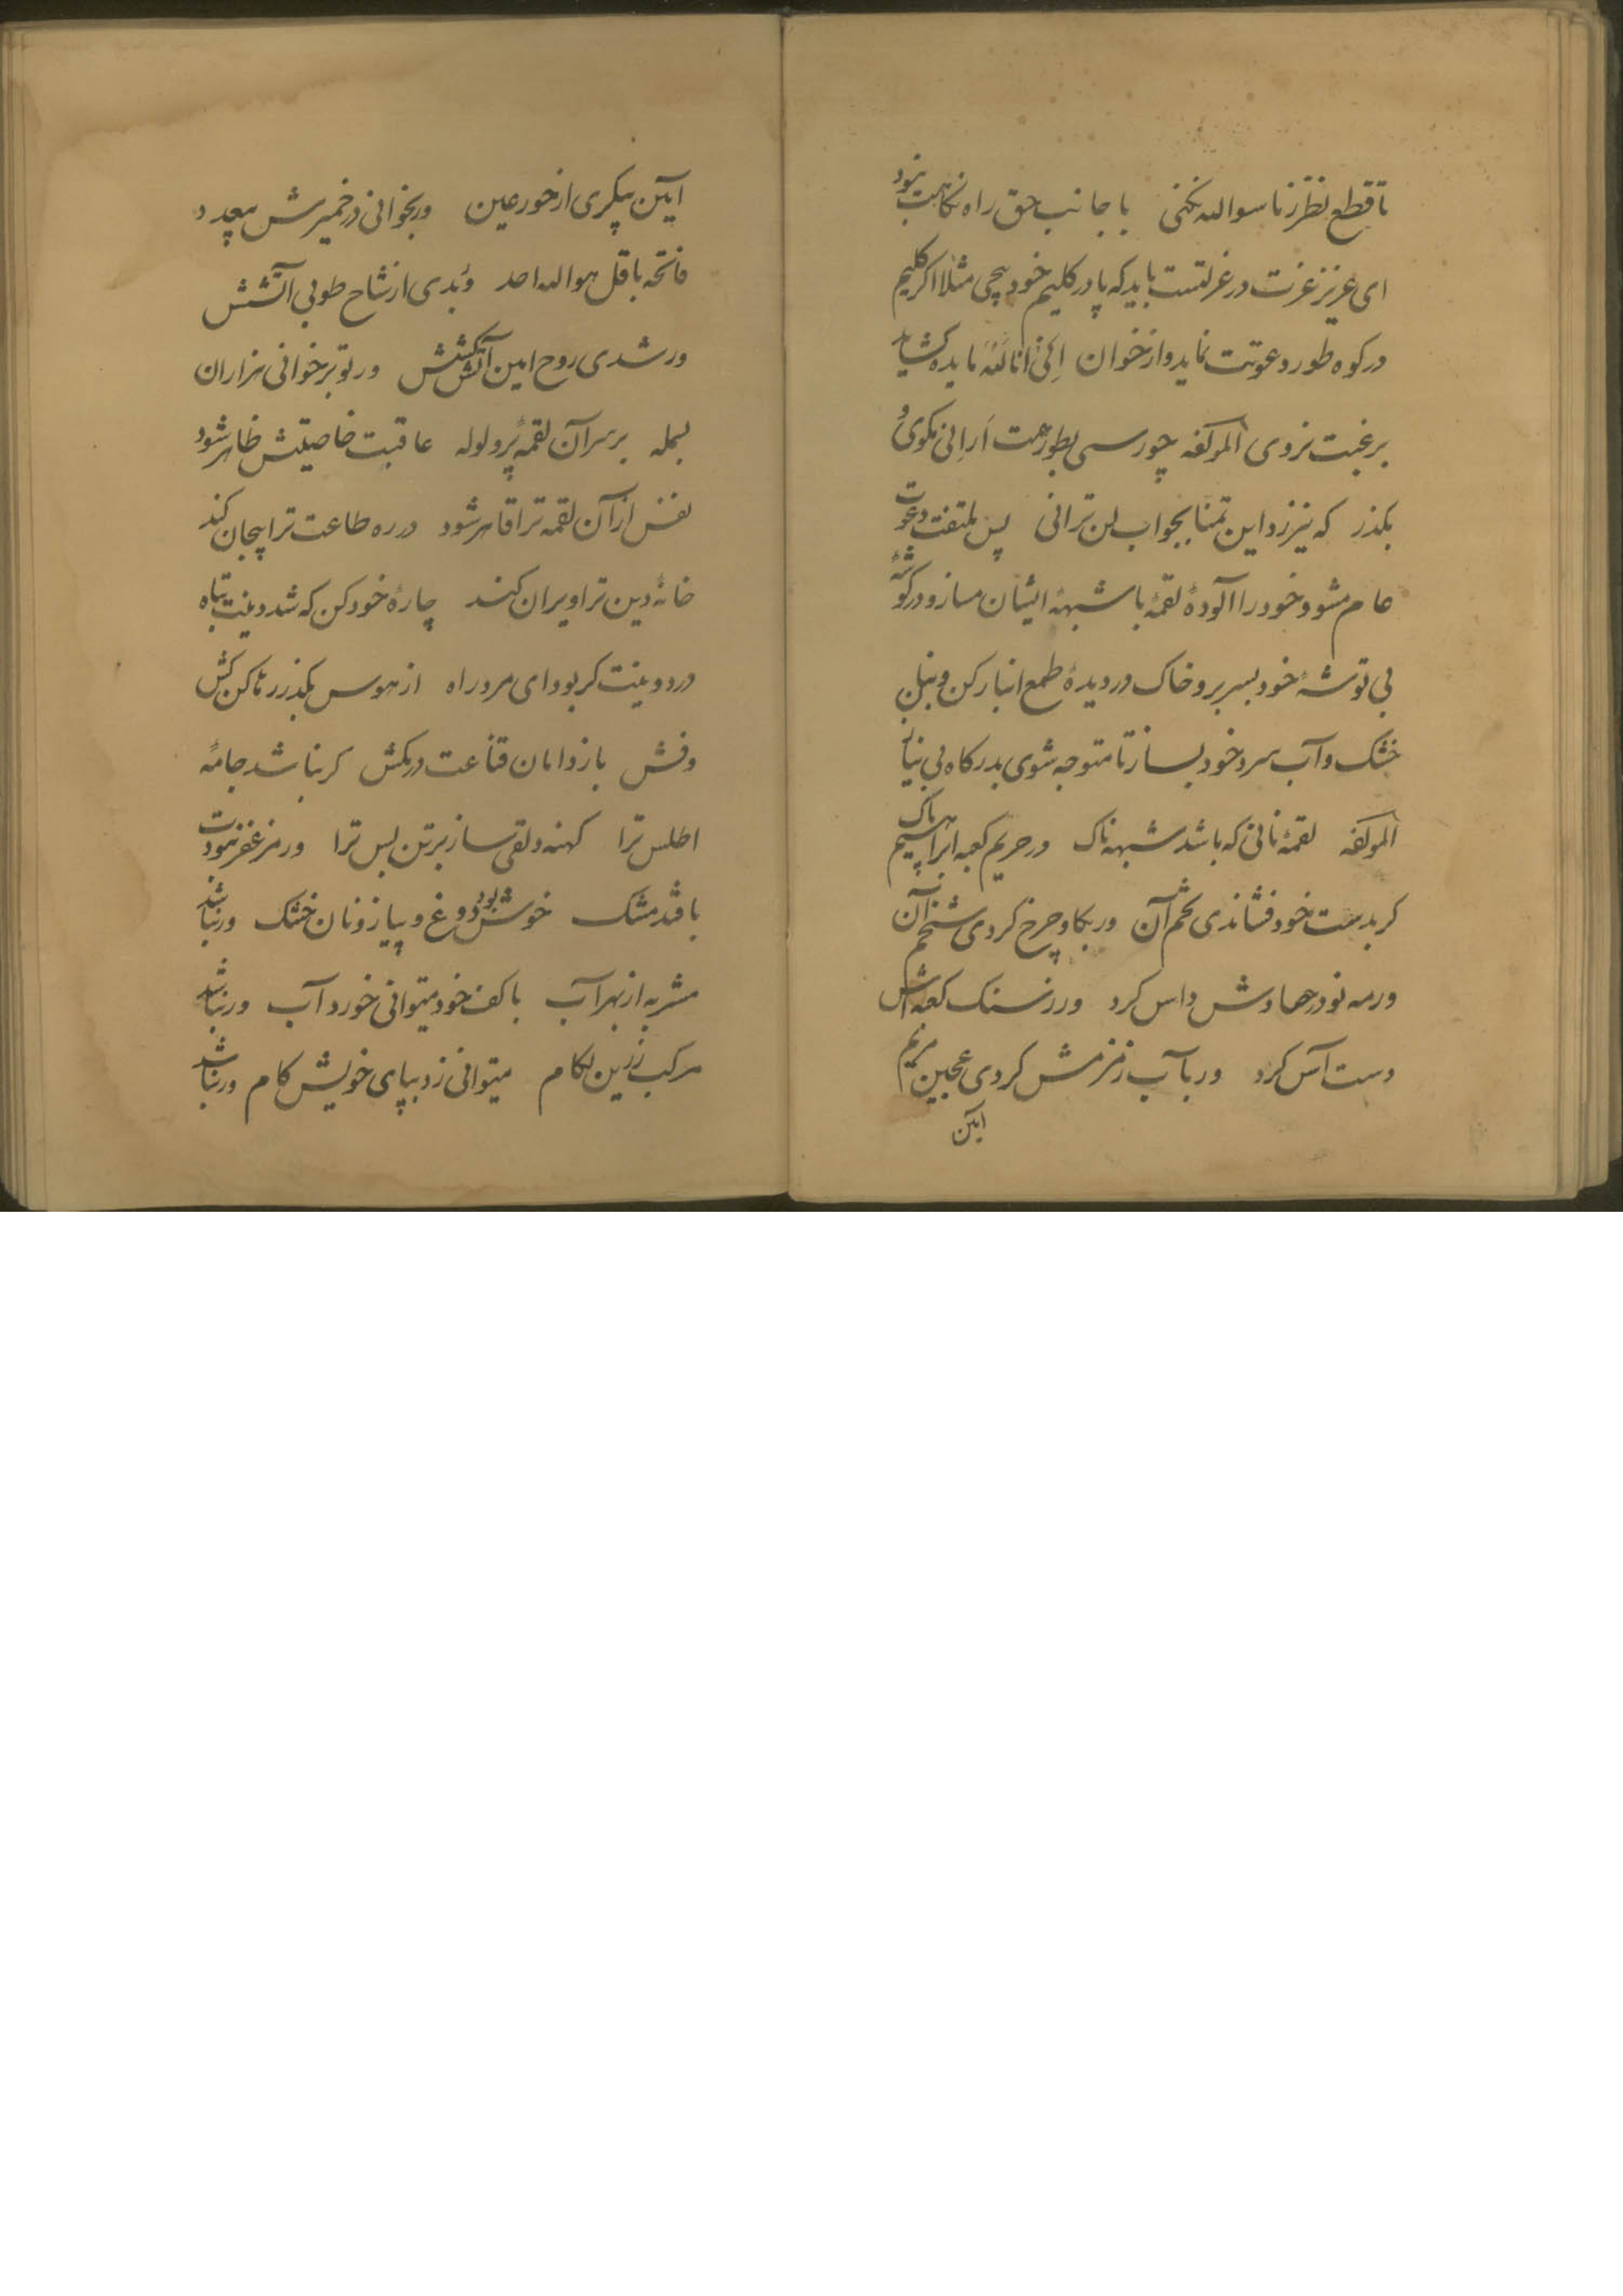 تا قطع نظر ز ما سوا الله نکنی با جانب حق راه نکاهت نبود
ای عزیز عزت در عزلتست باید که پا در کلیم خود پیچی مثلا اکر کلیم
در کوه طور دعوتت نماید و از خوان اِنّی اَنا اللّه مایده کشاید
برغبت نروی لمولفه چو رسی بطور همت اَرِنی مکوی و
بکذر که نیرزد این تمنا بجواب لن ترانی پس ملتفت دعوت
عام مشو و خود را آلودهٔ لقمهٔ با شبههٔ ایشان مساز و در کوشهٔ
بی توشهٔ خود بسر بر و خاک در دیدهٔ طمع انبار کن و بنان
خشک و آب سرد خود بساز تا متوجه شوی بدرکاه بی نیاز
لمولفه لقمهٔ نانی که باشد شبهه ناک در حریم کعبه ابراهیم پاک
کر بدست خود فشاندی تخم آن ور بکاو چرخ کردی شخم آن
ور مه نو در حصادش داس کرد ور ز سنک کعبه اش
دست آس کرد ور بآب زمزمش کردی عجین مریم
آیین
آیین پیکری از حور عین ور بخوانی در خمیرش بیعدد
فاتحه با قل هو الله احد ور بدی از شاخ طوبی آتشش
ور شدی روح امین آتش کشش ور تو بر خوانی هزاران
بسمله بر سر آن لقمهٔ پر ولوله عاقبت خاصیتش ظاهر شود
نفس از آن لقمه ترا قاهر شود در ره طاعت ترا بیجان کند
خانهٔ دین ترا ویران کند چارهٔ خود کن که شد دینت تباه
درد دینت کر بود ای مرد راه از هوس بکذر رها کن کش
و فش پا ز دامان قناعت در مکش کر نباشد جامهٔ
اطلس ترا کهنه دلقی ساز بر تن بس ترا ور مزعفر نبودت
با قند مشک خوش بود دوغ و پیاز و نان خشک ور نباشد
مشربه از بهر آب با کف خود میتوانی خورد آب ور نباشد
مرکب زرین لکام میتوانی زد بپای خویش کام ور نباشد